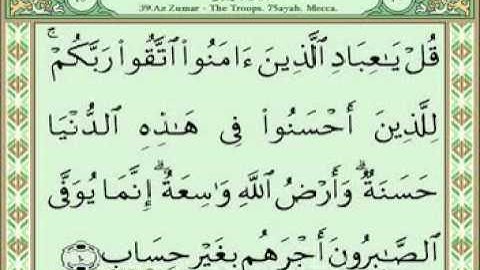 39.Az Zumar - The Troops. 75ayah. Mecca.
قُلْ يَٰعِبَادِ ٱلَّذِينَ ءَامَنُوا۟ ٱتَّقُوا۟ رَبَّكُمْ ۚ
لِلَّذِينَ أَحْسَنُوا۟ فِى هَٰذِهِ ٱلدُّنْيَا
حَسَنَةٌ ۗ وَأَرْضُ ٱللَّهِ وَٰسِعَةٌ ۗ إِنَّمَا يُوَفَّى
ٱلصَّٰبِرُونَ أَجْرَهُم بِغَيْرِ حِسَابٍ ١٠